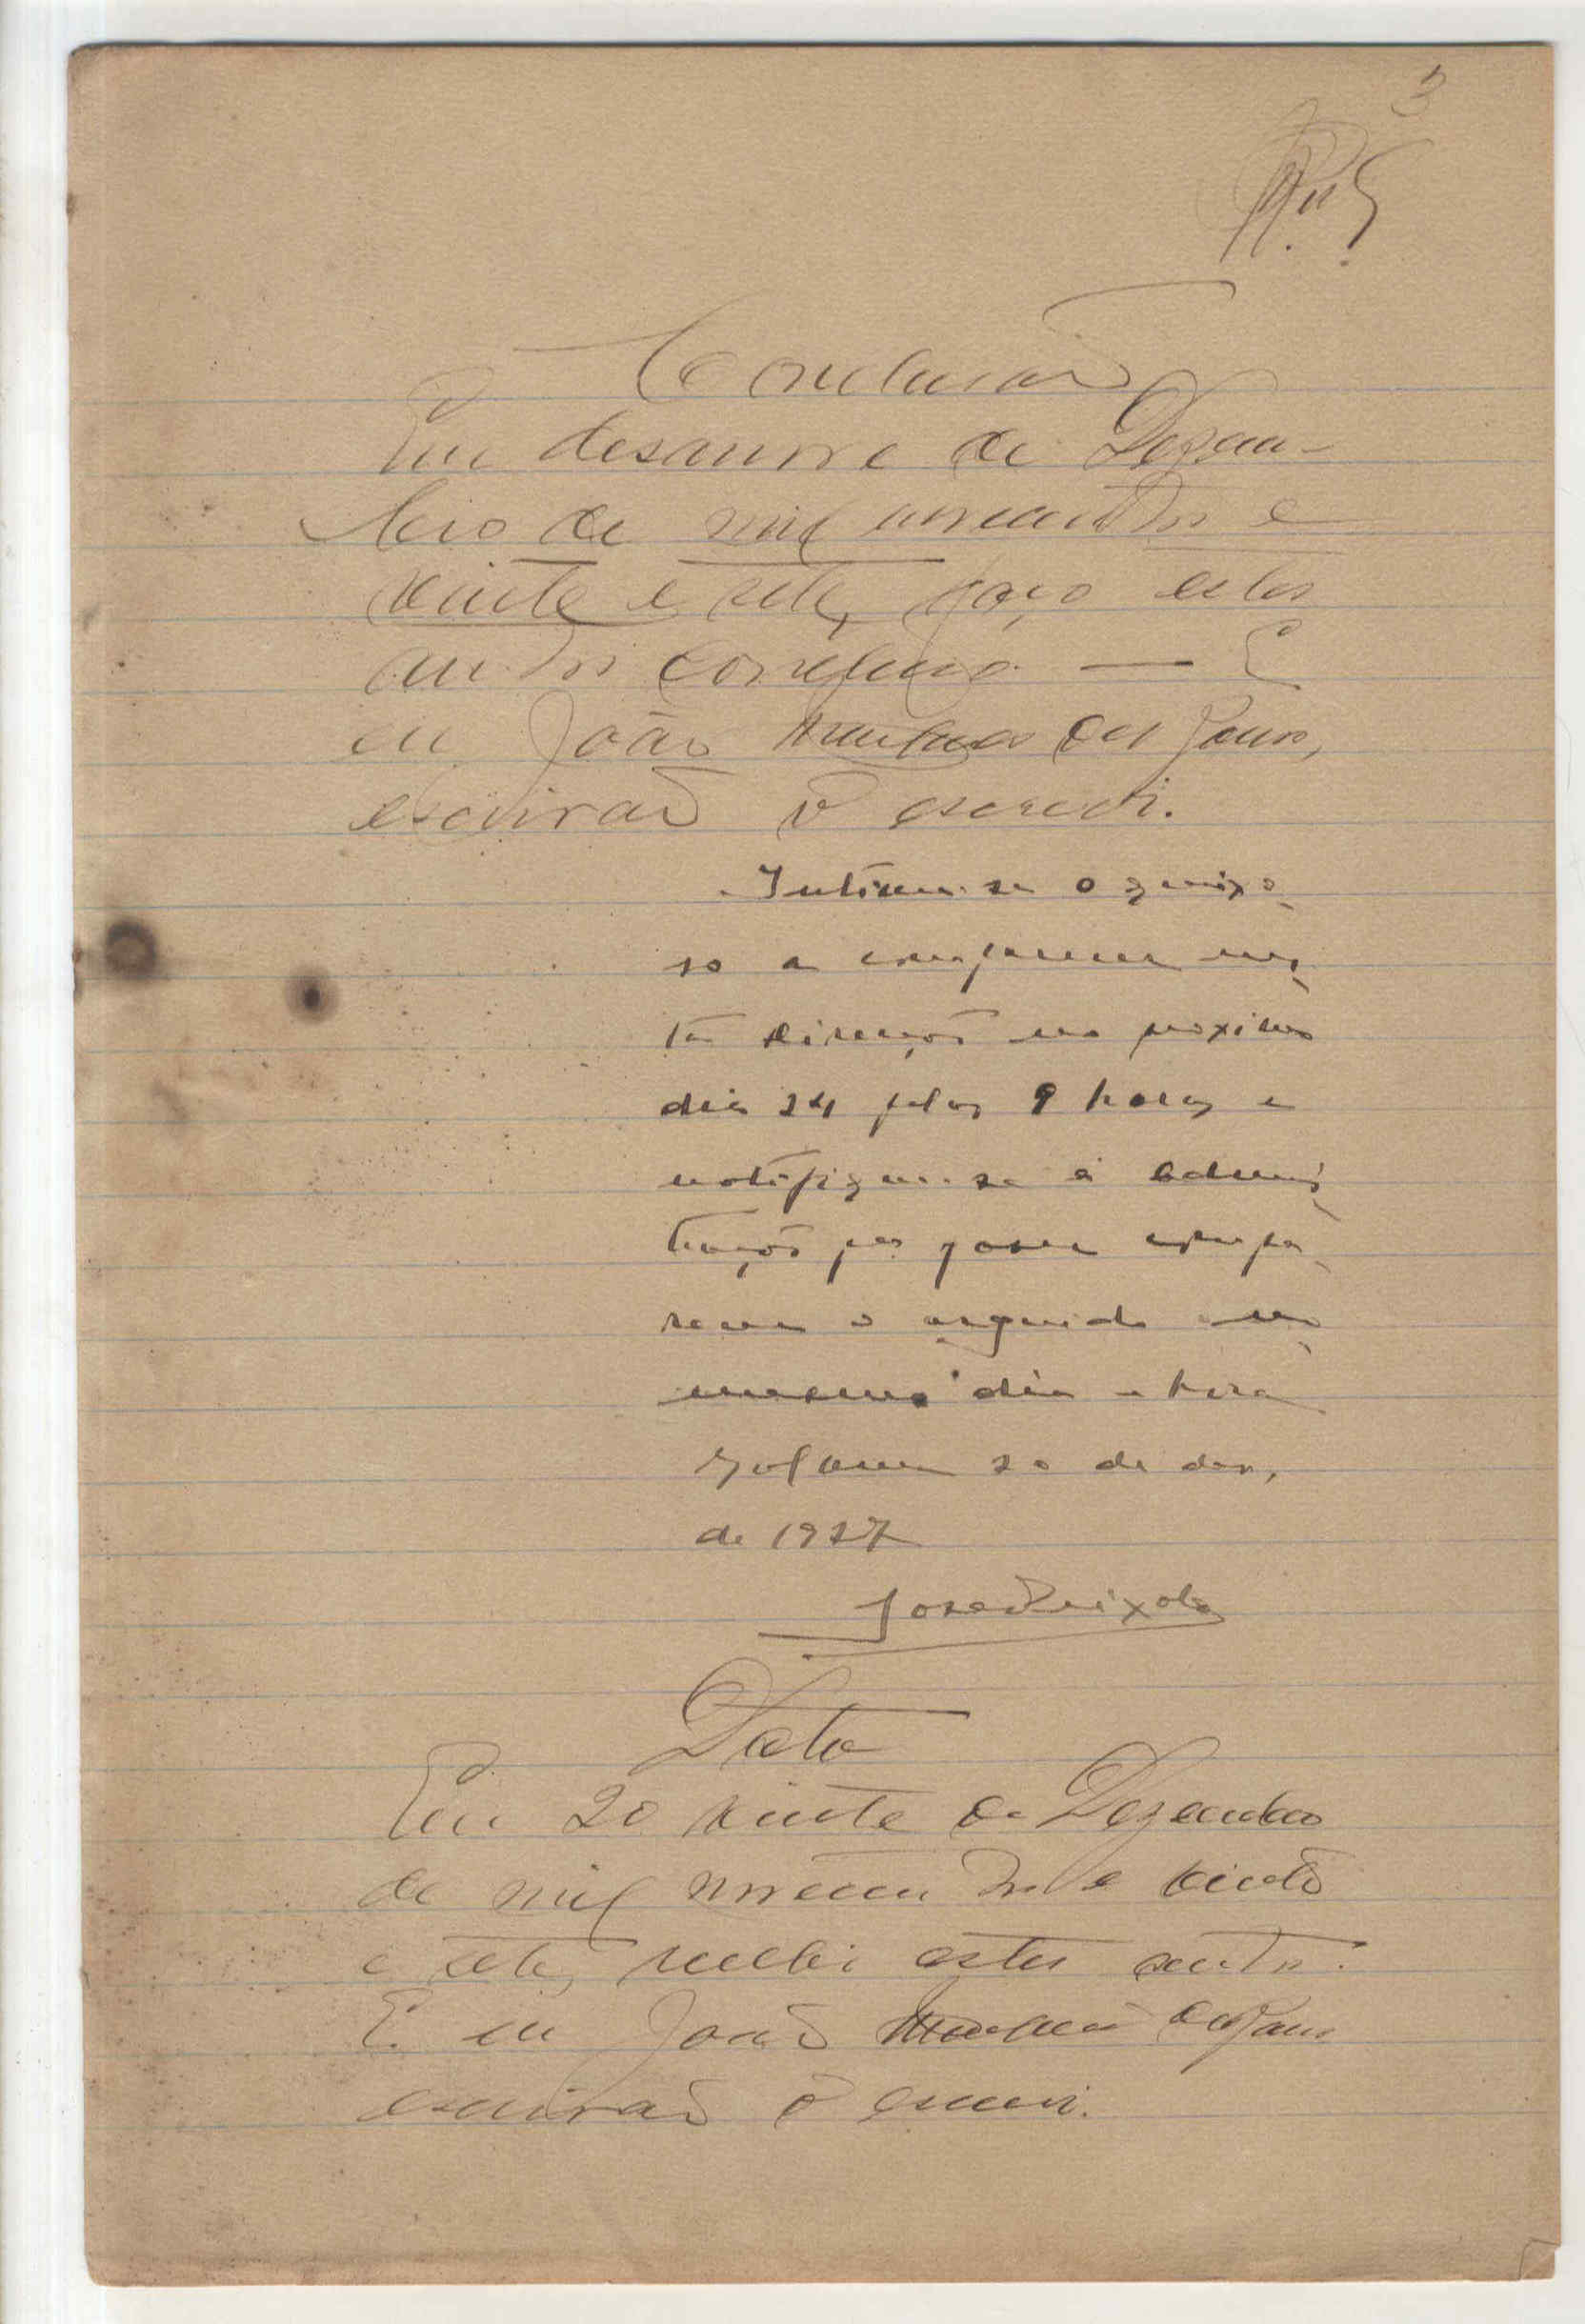 3
Conclusão
Em desanove de Dezem-
bro de mil novecentos e
vinte e sete, faço estes
autos conclusos. — E
eu João de Jesus,
escrivão o escrevi.
Intime-se o queixo-
so a comparecer nes-
ta direcção no proximo
dia 24 pelas 9 horas e
notifique-se á adminis-
tração pa fazer compa-
recer o arguido no
mesmo dia e hora
20 de dez,
de 1927
José Peixoto
Data
Em 20 vinte de Dezembro
de mil novecentos e vinte
e sete, recebi estes autos.
E eu João de Jesus
escrivão o escrevi.